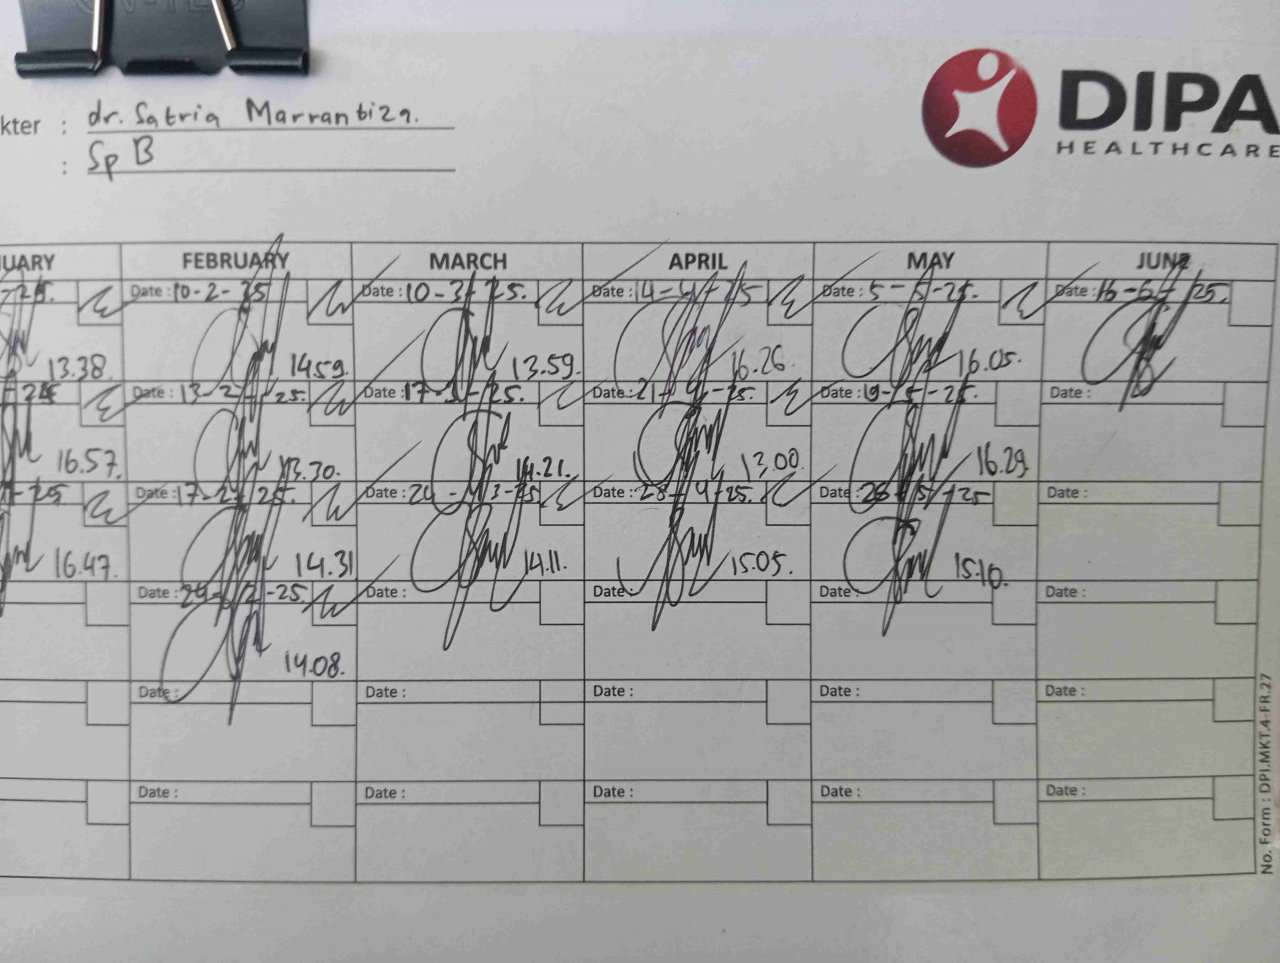 DIPA
HEALTHCARE
kter : dr. Satria Marrantiza.
: Sp B
UARY FEBRUARY MARCH APRIL MAY JUNE
25. Date : 10-2-25 Date : 10-3-25. Date : 14-4-25 Date : 5-5-25. Date : 16-6-25.
13.38 14.59. 13.59. 16.26. 16.05.
Date : 13-2-25. Date : 17-3-25. Date : 21-4-25. Date : 19-5-25. Date :
16.57. 13.30. 14.21. 13.00 16.29.
-25 Date : 17-2-25. Date : 24-3-25 Date : 28-4-25. Date : 26-5-25 Date :
16.47. 14.31 14.11. 15.05. 15.10.
Date : 24-2-25. Date : Date : Date : Date :
14.08.
Date : Date : Date : Date : Date :
Date : Date : Date : Date : Date :
No. Form : DPI.MKT.4-FR.27